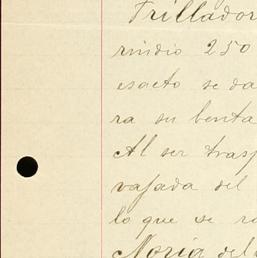 Trillador
rindio 250
esacto se da
ra su benta
Al ser trasp
vasada del
lo que se ra
Noria del